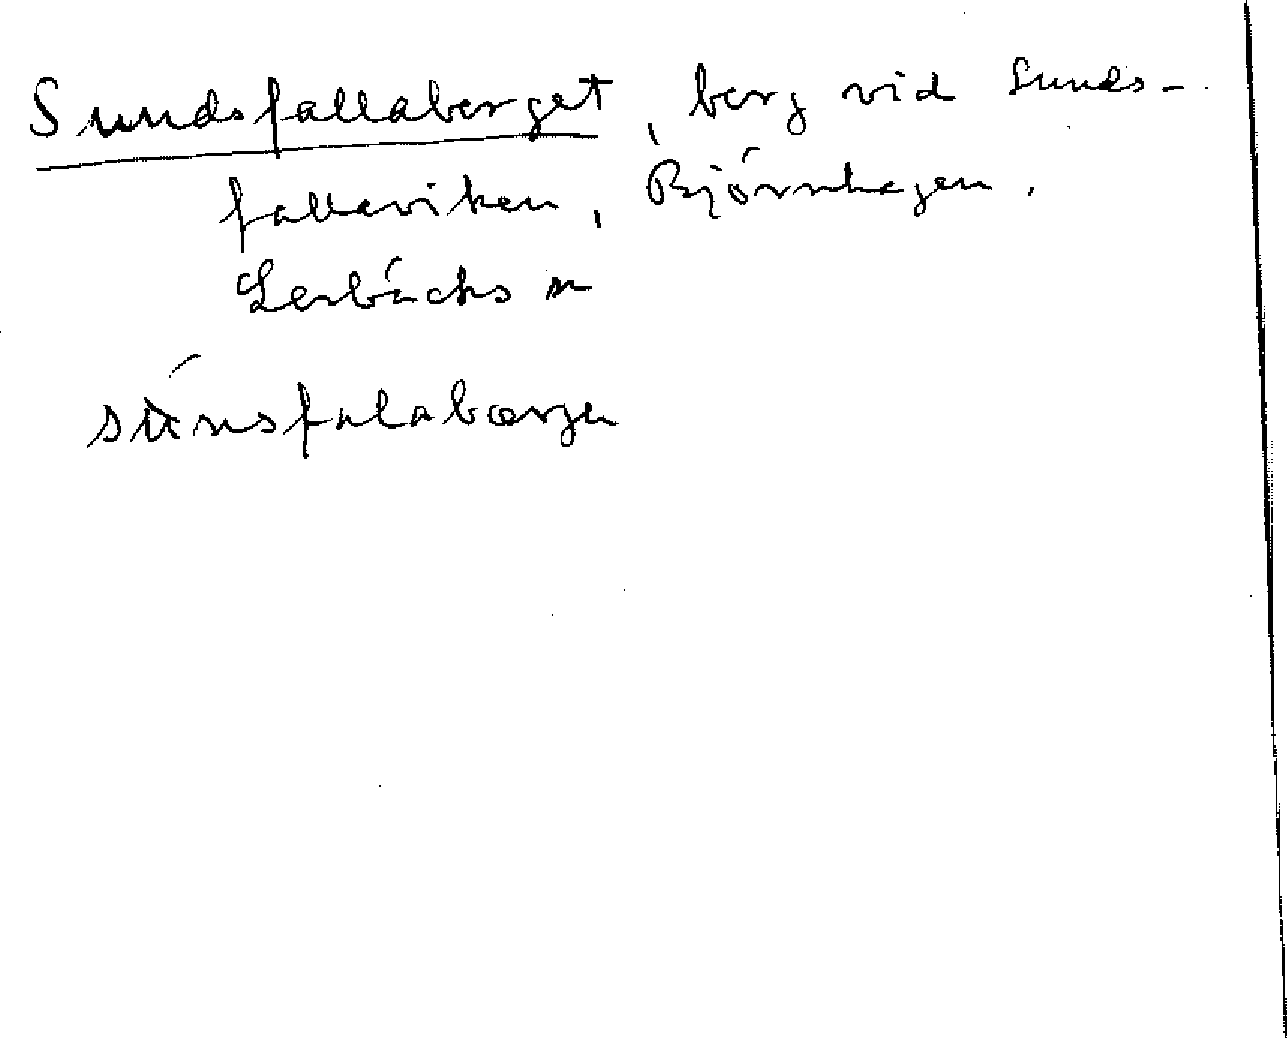 Sundsfallaberget, berg vid Sunds-
fallaviken, Björnhagen.
Lerbäcks sn
sunsfalabærjen